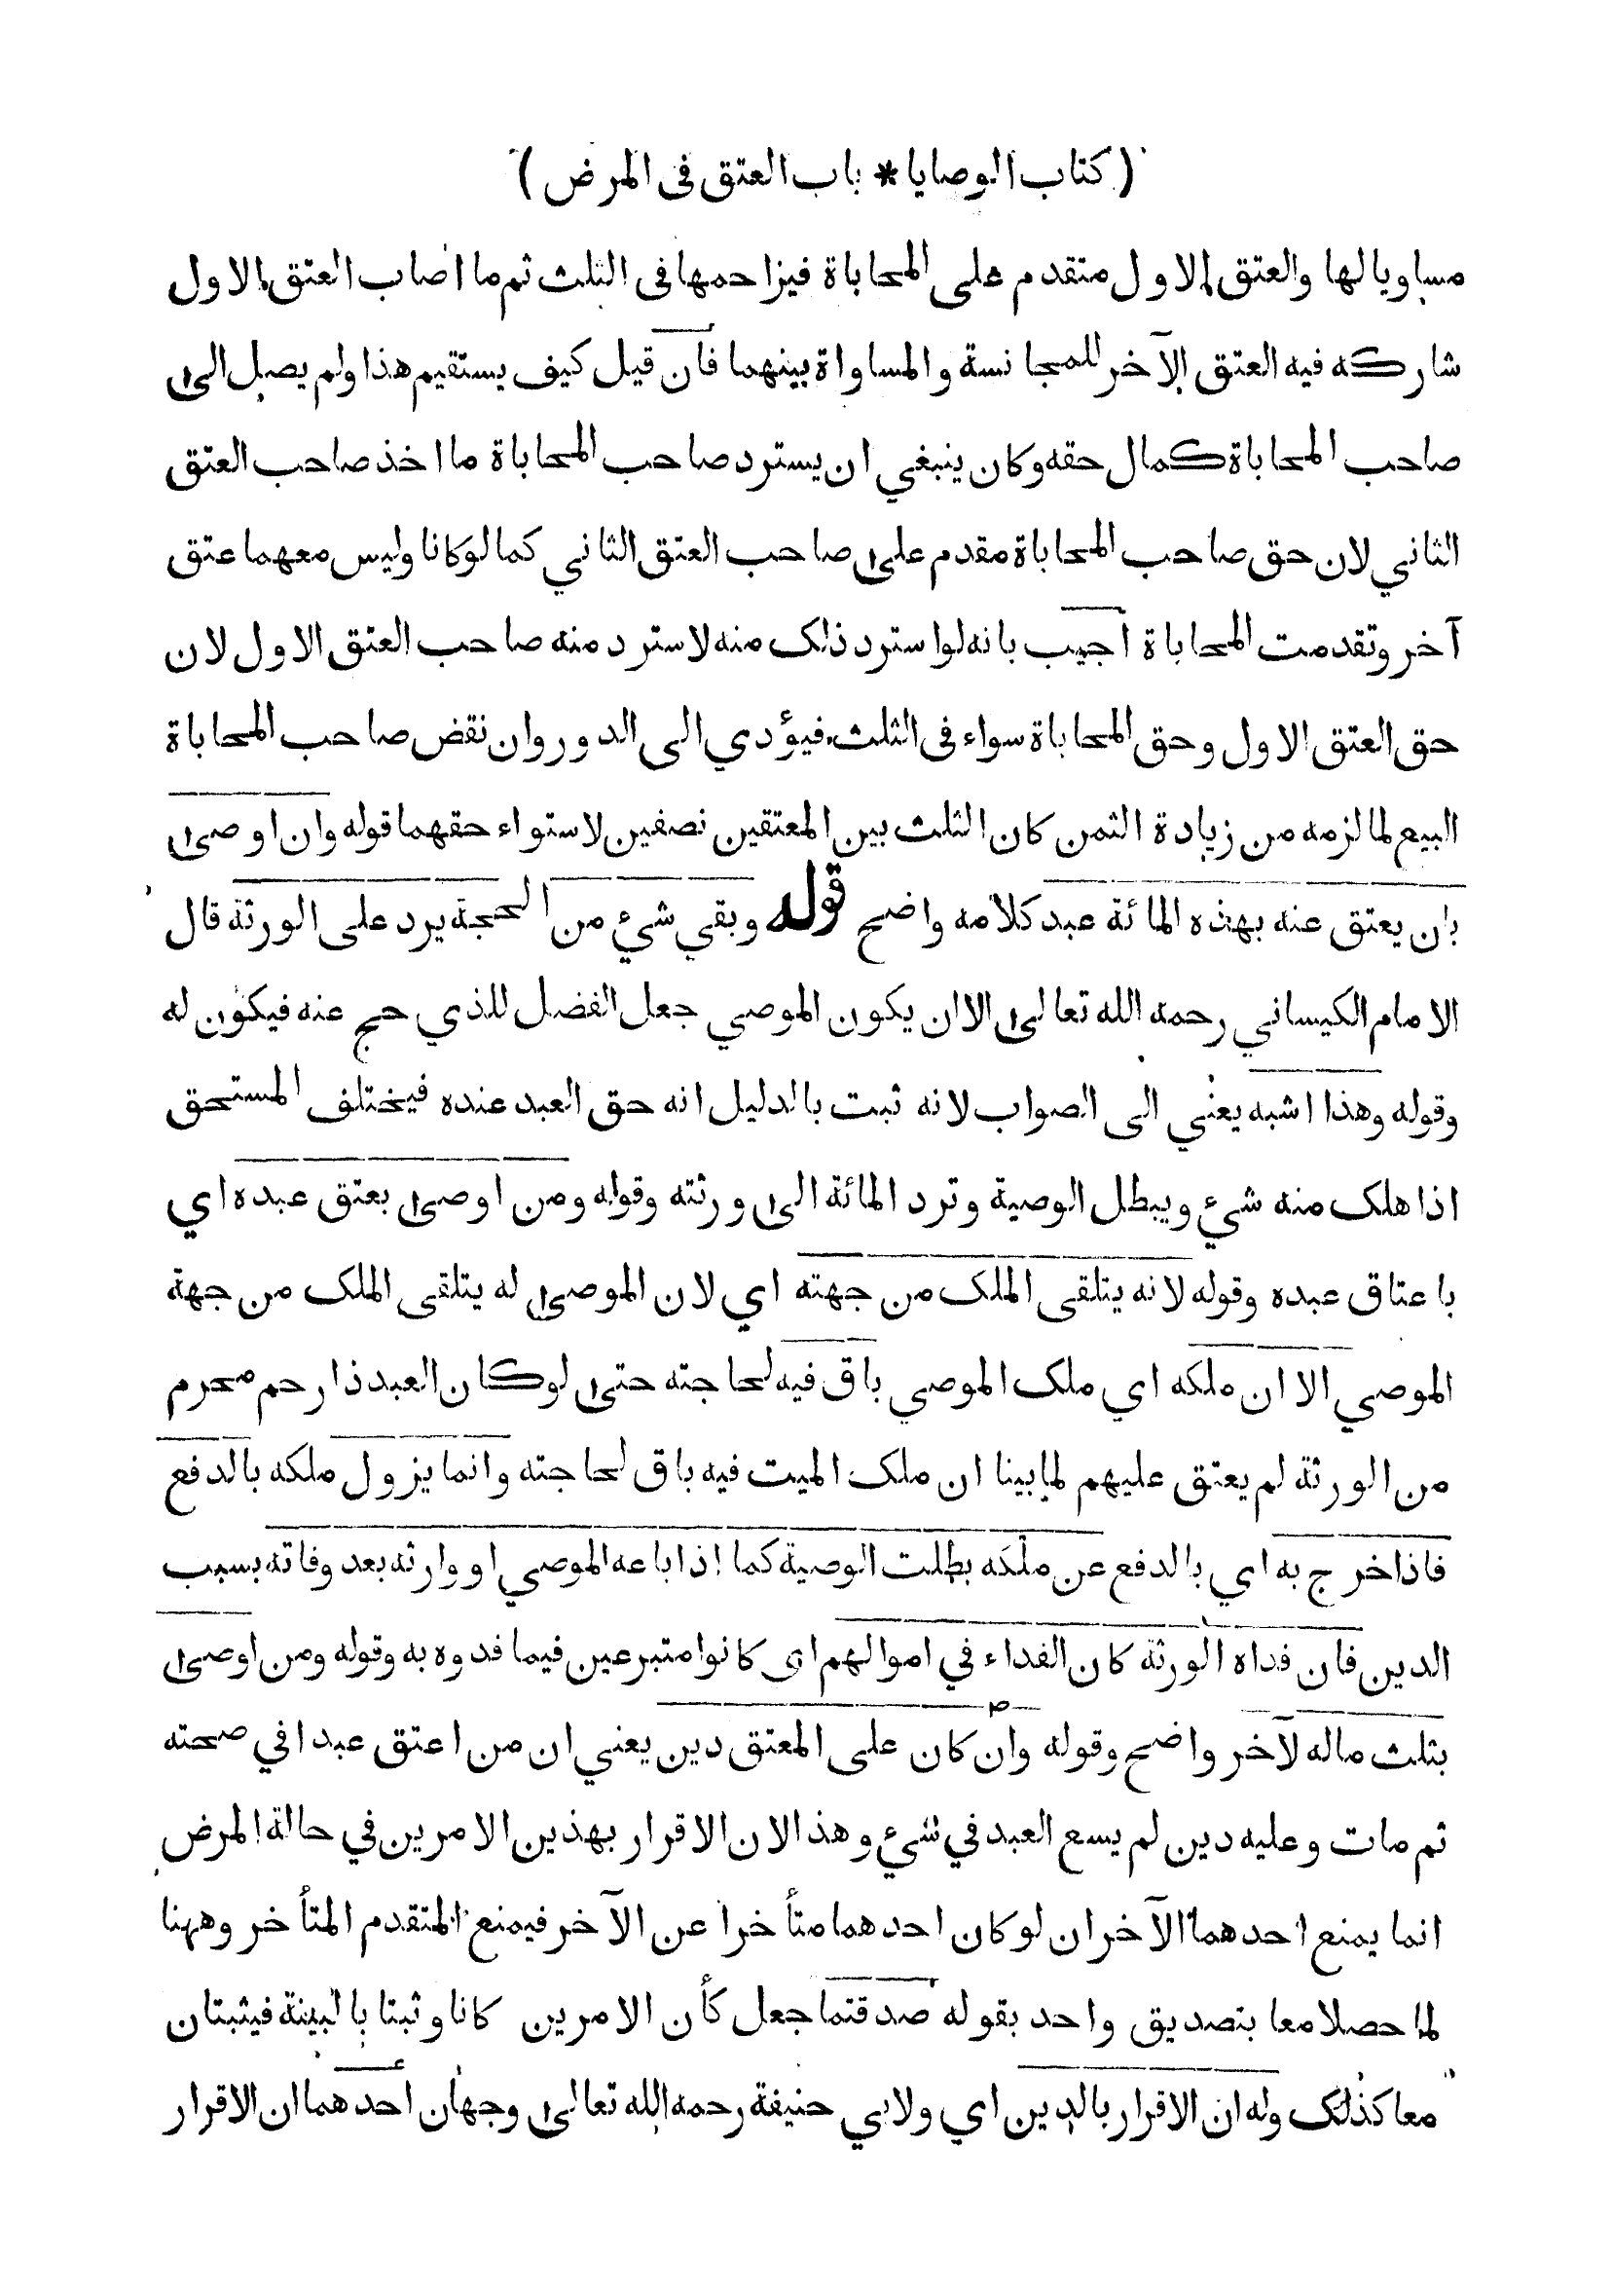 ( كتاب الوصايا * باب العتق فى المرض )
مساويا لها والعتق الاول متقدم على المحاباة فيزاحمها فى الثلث ثم ما اصاب العتق الاول
شاركه فيه العتق الآخر للمجانسة والمساواة بينهما فان قيل كيف يستقيم هذا ولم يصل الى
صاحب المحاباة كمال حقه وكان ينبغي ان يسترد صاحب المحاباة ما اخذ صاحب العتق
الثاني لان حق صاحب المحاباة مقدم على صاحب العتق الثاني كما لو كانا وليس معهما عتق
آخر وتقدمت المحاباة اجيب بانه لو استرد ذلك منه لاسترد منه صاحب العتق الاول لان
حق العتق الاول وحق المحاباة سواء فى الثلث فيؤدي الى الدور وان نقض صاحب المحاباة
البيع لما لزمه من زيادة الثمن كان الثلث بين المعتقين نصفين لاستواء حقهما قوله وان اوصى
بان يعتق عنه بهذه المائة عبد كلامه واضح قوله وبقي شيء من الحجة يرد على الورثة قال
الامام الكيساني رحمه الله تعالى الا ان يكون الموصي جعل الفضل للذي حج عنه فيكون له
وقوله وهذا اشبه يعني الى الصواب لانه ثبت بالدليل انه حق العبد عنده فيختلف المستحق
اذا هلك منه شيء ويبطل الوصية وترد المائة الى ورثته وقوله ومن اوصى بعتق عبده اي
باعتاق عبده وقوله لانه يتلقى الملك من جهته اي لان الموصى له يتلقى الملك من جهة
الموصي الا ان ملكه اي ملك الموصي باق فيه لحاجته حتى لو كان العبد ذا رحم محرم
من الورثة لم يعتق عليهم لما بينا ان ملك الميت فيه باق لحاجته وانما يزول ملكه بالدفع
فاذا خرج به اي بالدفع عن ملكه بطلت الوصية كما اذا باعه الموصي او وارثه بعد وفاته بسبب
الدين فان فداه الورثة كان الفداء في اموالهم اى كانوا متبرعين فيما فدوه به وقوله ومن اوصى
بثلث ماله لآخر واضح وقوله وان كان على المعتق دين يعني ان من اعتق عبدا في صحته
ثم مات وعليه دين لم يسع العبد في شيء وهذا لان الاقرار بهذين الامرين في حالة المرض
انما يمنع احدهما الآخر ان لو كان احدهما متأخرا عن الآخر فيمنع المتقدم المتأخر وههنا
لما حصلا معا بتصديق واحد بقوله صدقتما جعل كأن الامرين كانا وثبتا بالبينة فيثبتان
معا كذلك وله ان الاقرار بالدين اي ولابي حنيفة رحمه الله تعالى وجهان احدهما ان الاقرار